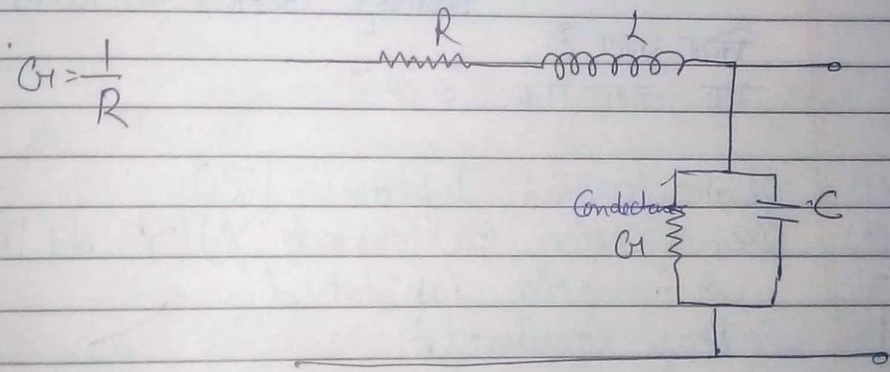 G = 1/R
R
L
Conductance
G
C